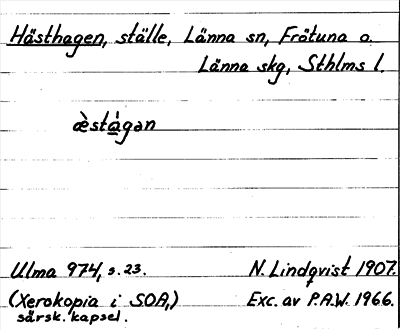 Hästhagen, ställe, Länna sn, Frötuna o.
Länna skg, Sthlms l.
æ̀stágan
Ulma 974, s. 23. N. Lindqvist 1907.
(Xerokopia i SOA,) Exc. av P.A.W. 1966.
särsk. kapsel.